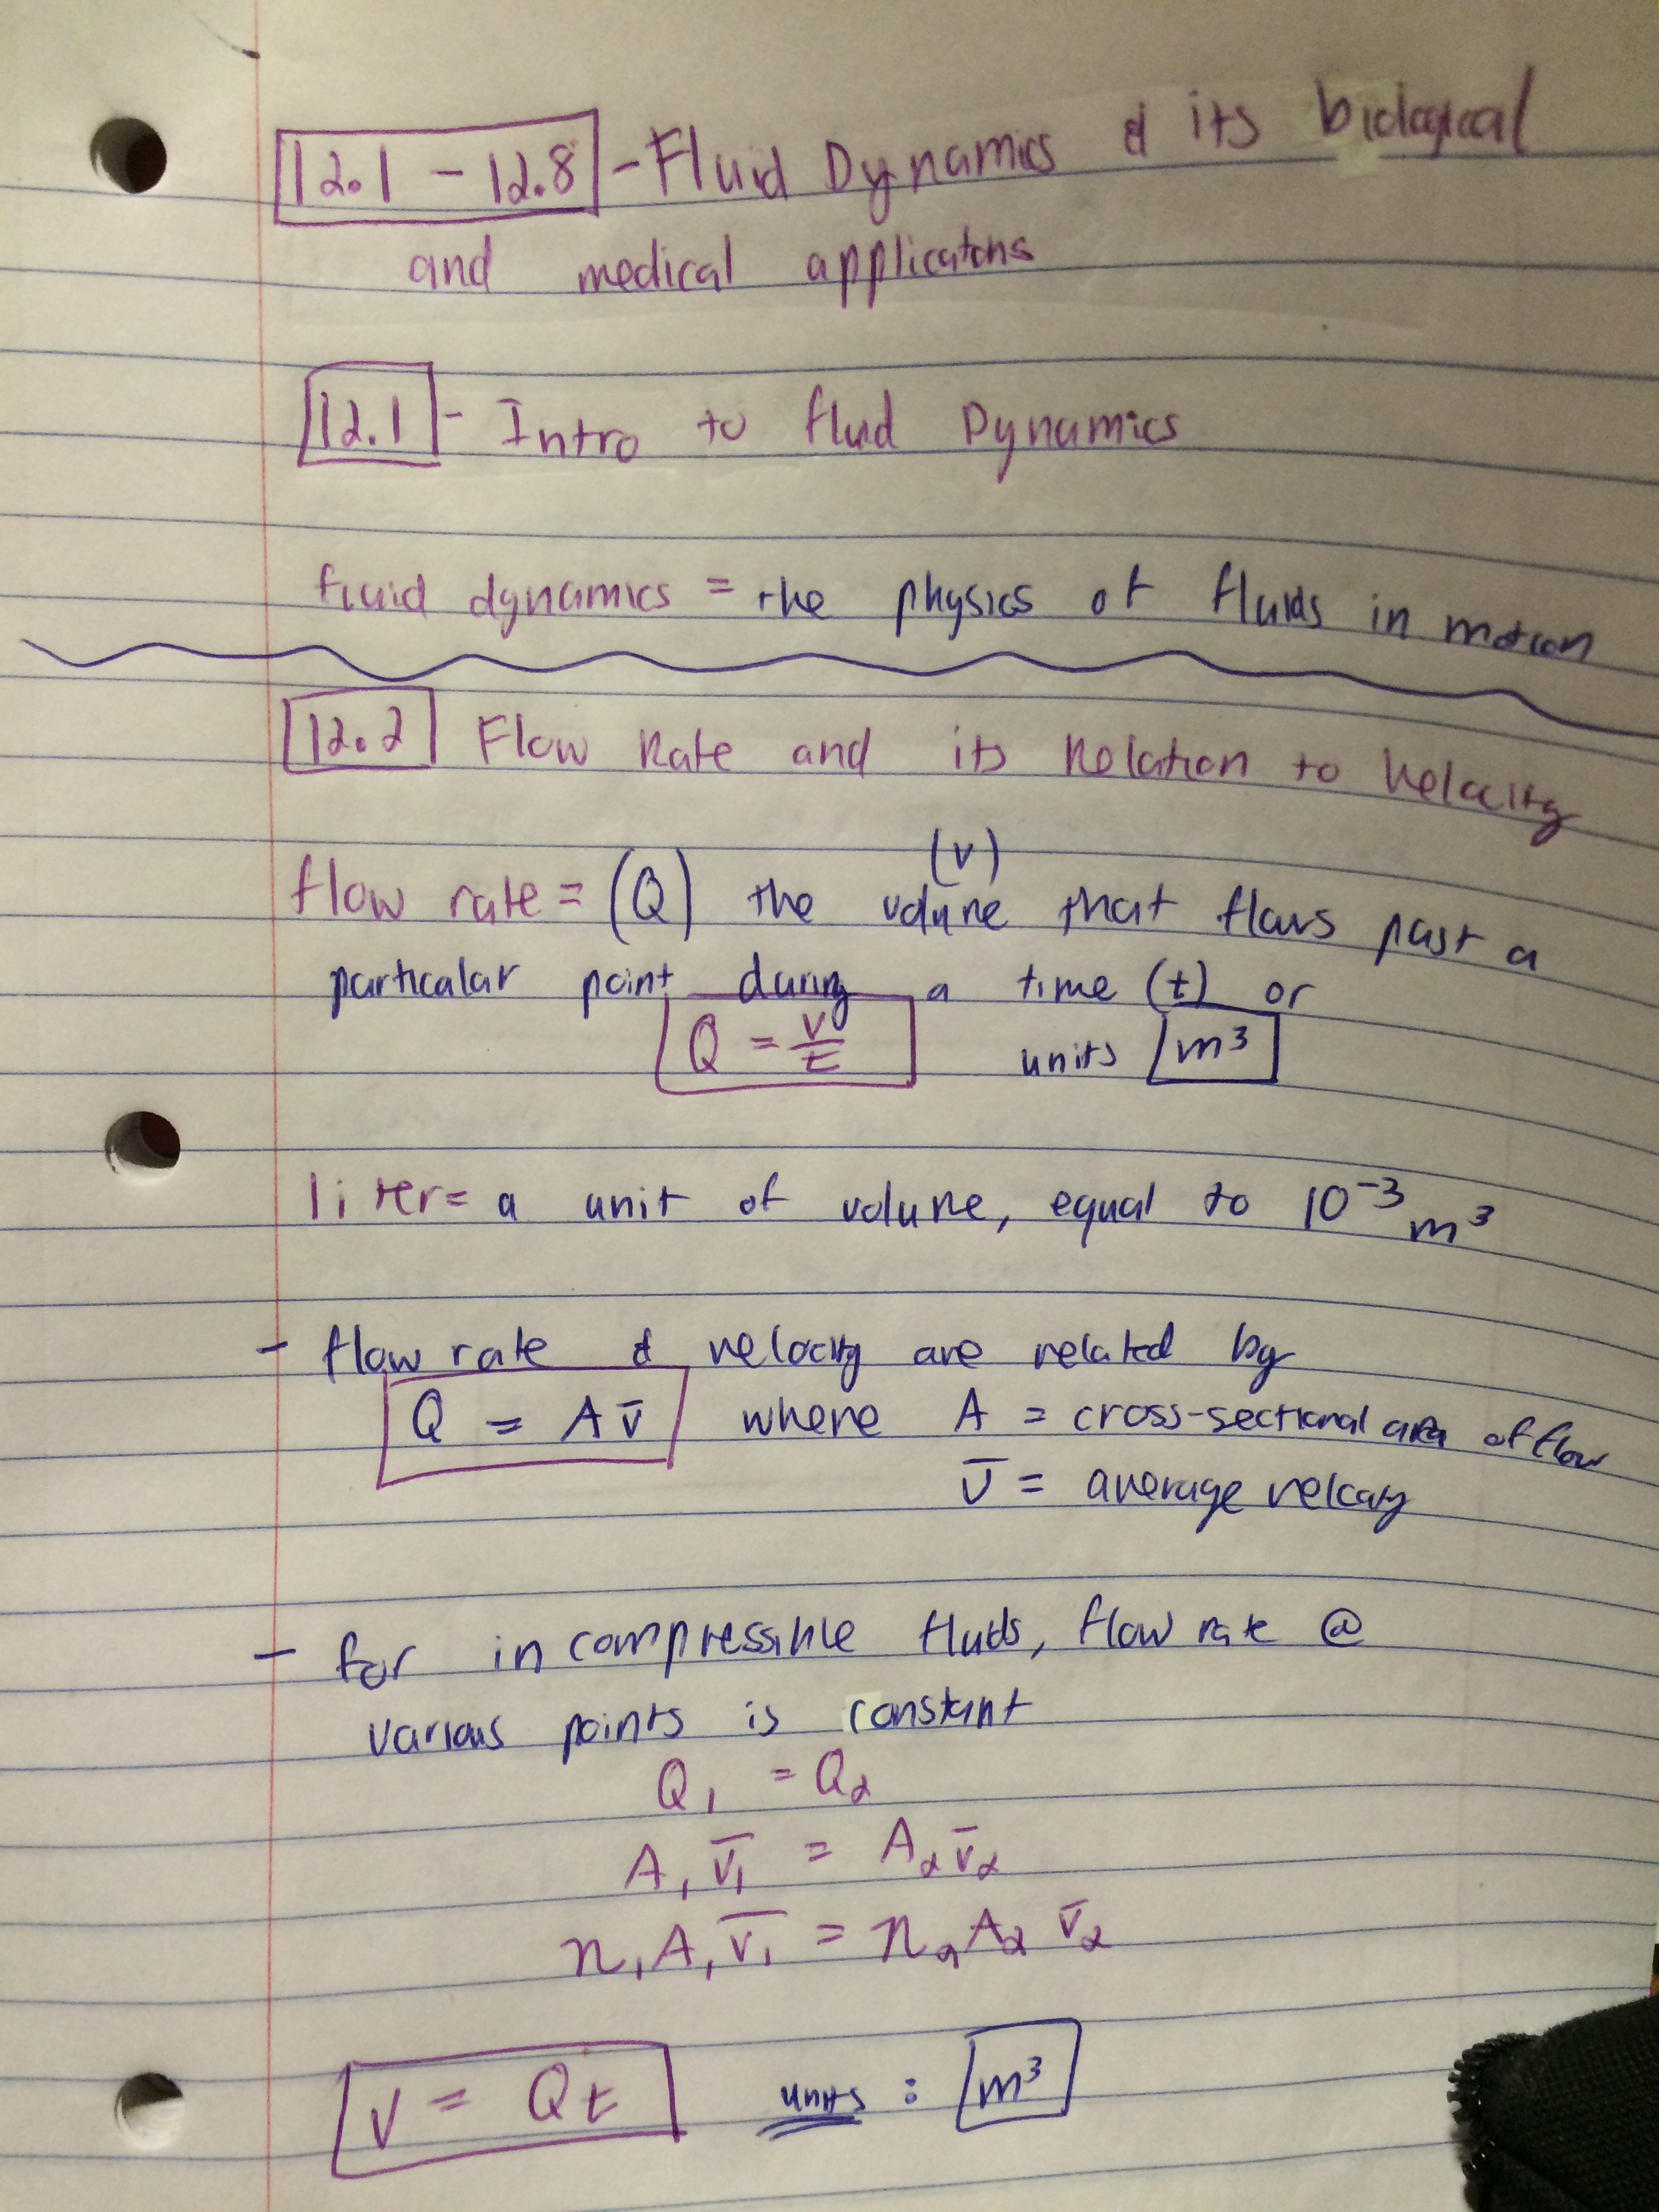 12.1 - 12.8 - Fluid Dynamics & its biological
and medical applicatons
12.1 - Intro to fluid Dynamics
fluid dynamics = the physics of fluids in motion
12.2 Flow Rate and its Relation to Velocity
(v)
flow rate = (Q) the volume that flows past a
particular point during a time (t) or
Q = v/t units m³
liter = a unit of volume, equal to 10⁻³ m³
- flow rate & velocity are related by
Q = A v̄ where A = cross-sectional area of flow
v̄ = average velocity
- for incompressible fluids, flow rate @
various points is constant
Q₁ = Q₂
A₁ v̄₁ = A₂ v̄₂
n₁ A₁ v̄₁ = n₂ A₂ v̄₂
V = Qt units : m³